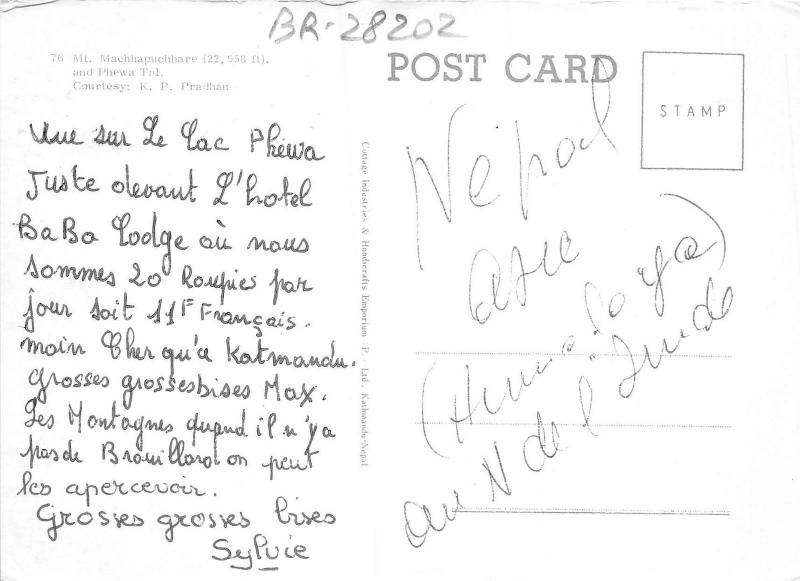 BR-28202
76 Mt. Machhapuchhare (22,958 ft).
and Phewa Tal.
Courtesy: K. P. Pradhan
POST CARD
STAMP
Vue sur Le Lac Phéwa
Juste devant L'hotel
BaBa Lodge où nous
sommes 20 Roupies par
jour soit 11F Français.
moin Cher qu'a Katmandu.
Grosses grosses bises Max.
Les Montagnes quand il n'ya
pas de Brouillard on peut
les apercevoir.
Grosses grosses bises
Sylvie
Cottage Industries & Handicrafts Emporium (P.) Ltd., Kathmandu-Nepal
Népal
Asie
(Himalaya)
au N de l'Inde